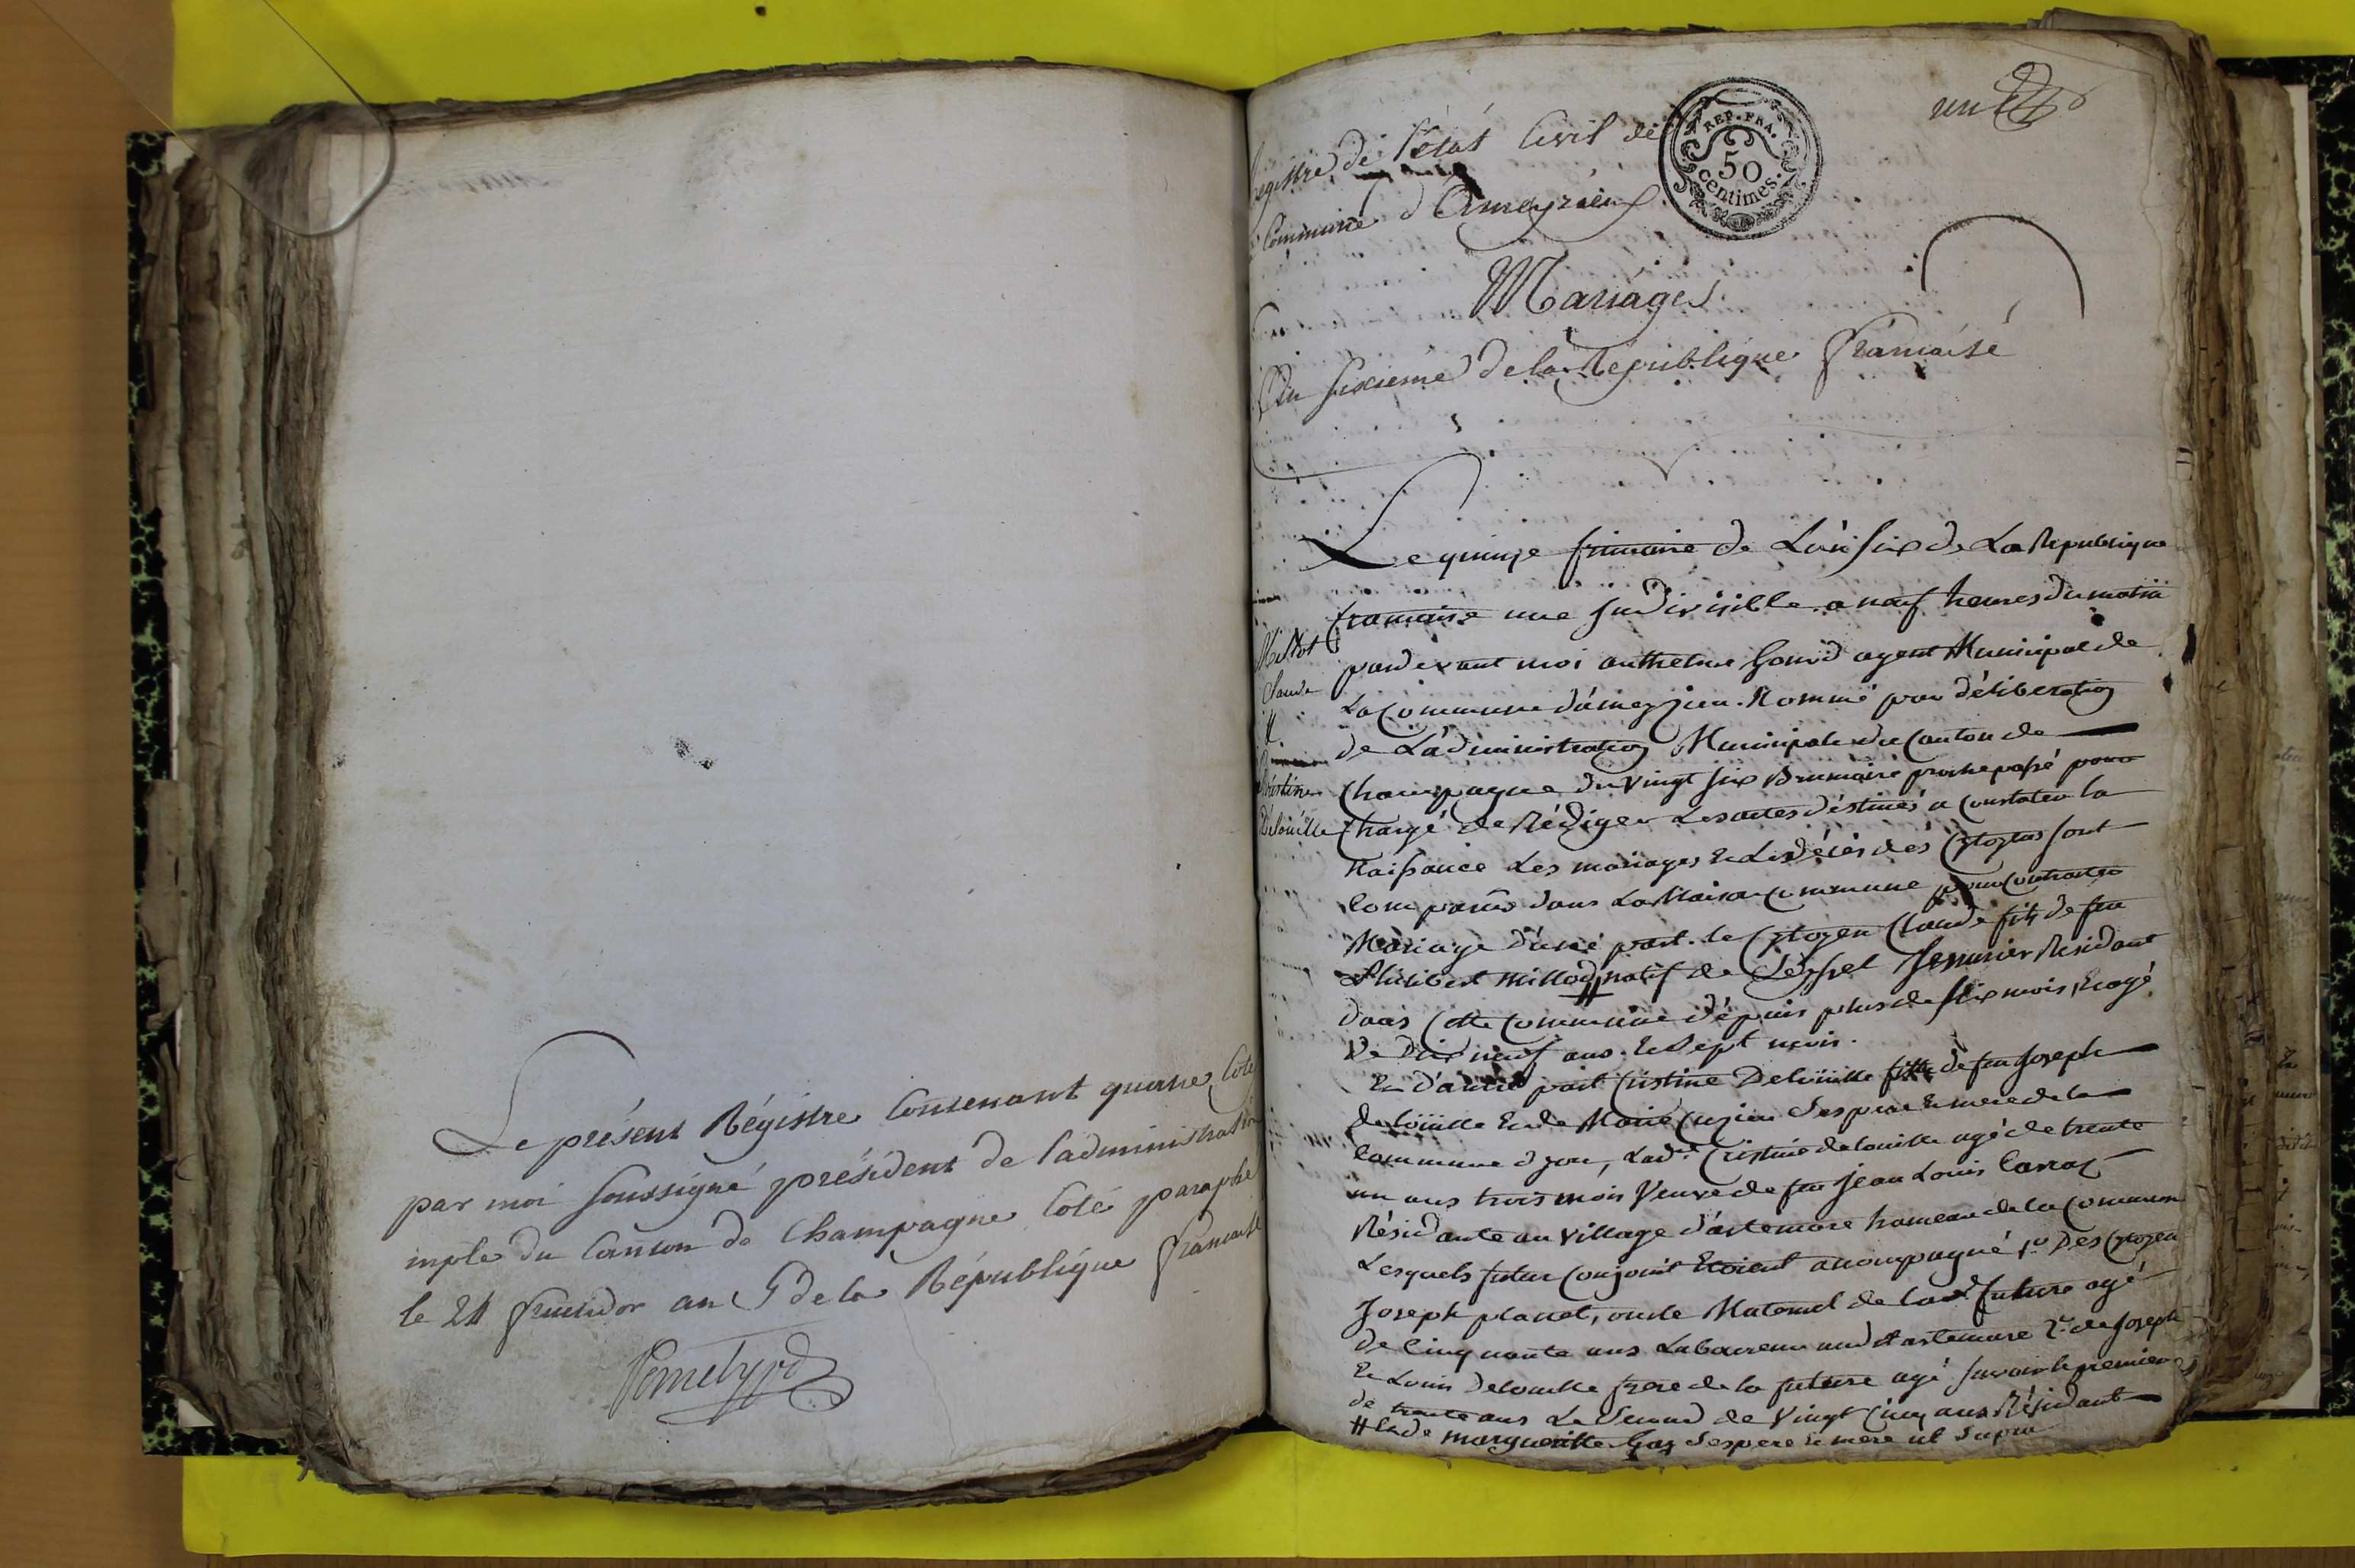 Le présent Régistre Contenant quatre Cotes
par moi soussigné président de l'administration
mple du Canton de Champagne Coté paraphé
le 24 fructidor an 5 de la République francaise
Registre de l'état Civil de
Commune d'Ameyzieu
REP. FRA.
50
centimes.
un
Mariages
an sixieme de la République francaise
Le quinze frimaire de L'an six de La Republique
francaise une Indivisible a neuf heures du matin
pardevant moi anthelme Gonod agent Municipal de
La Commune d'ameyzieu. Nommé par déliberation
de L'administration Municipale du Canton de
Champagne du vingt six Brumaire proche passé pour
Chargé de Rédiger Les actes déstinés a Constater la
Naissance Les mariages et Les décés dés Citoyens sont
Comparus dans La Maison Commune pour Contracter
Mariage d'une part. le Citoyen Claude fils de feu
Philibert Millod # natif de Seyssel Résidant
dans Cette Commune dépuis plus de six mois, et agé
De Dix neuf ans. et Sept mois.
Et d'autre part Cristine Delouille fille de feu Joseph
delouille et de Marie Cuzin Ses pere et mere de la
Commune d'yon, Lad.e Cristine delouille agé de trente
un ans trois mois Veuve de feu Jean Louis Carraz
Résidante au village d'artemare hameau de la Commune
Lesquels futur Conjoint Etoient acompagné 1.o Des Citoyen
Joseph planet, oncle Maternel de lad.e future agé
de Cinquante ans Laboureur aud.t artemare 2.o de Joseph
Et Louis Delouille frere de la future agé savoir le premier
de trente ans Le Second de Vingt Cinq ans Résidant
# et de margueritte Gay ses pere et mere ut supra
Millot
Claude
&
Christine
Delouille